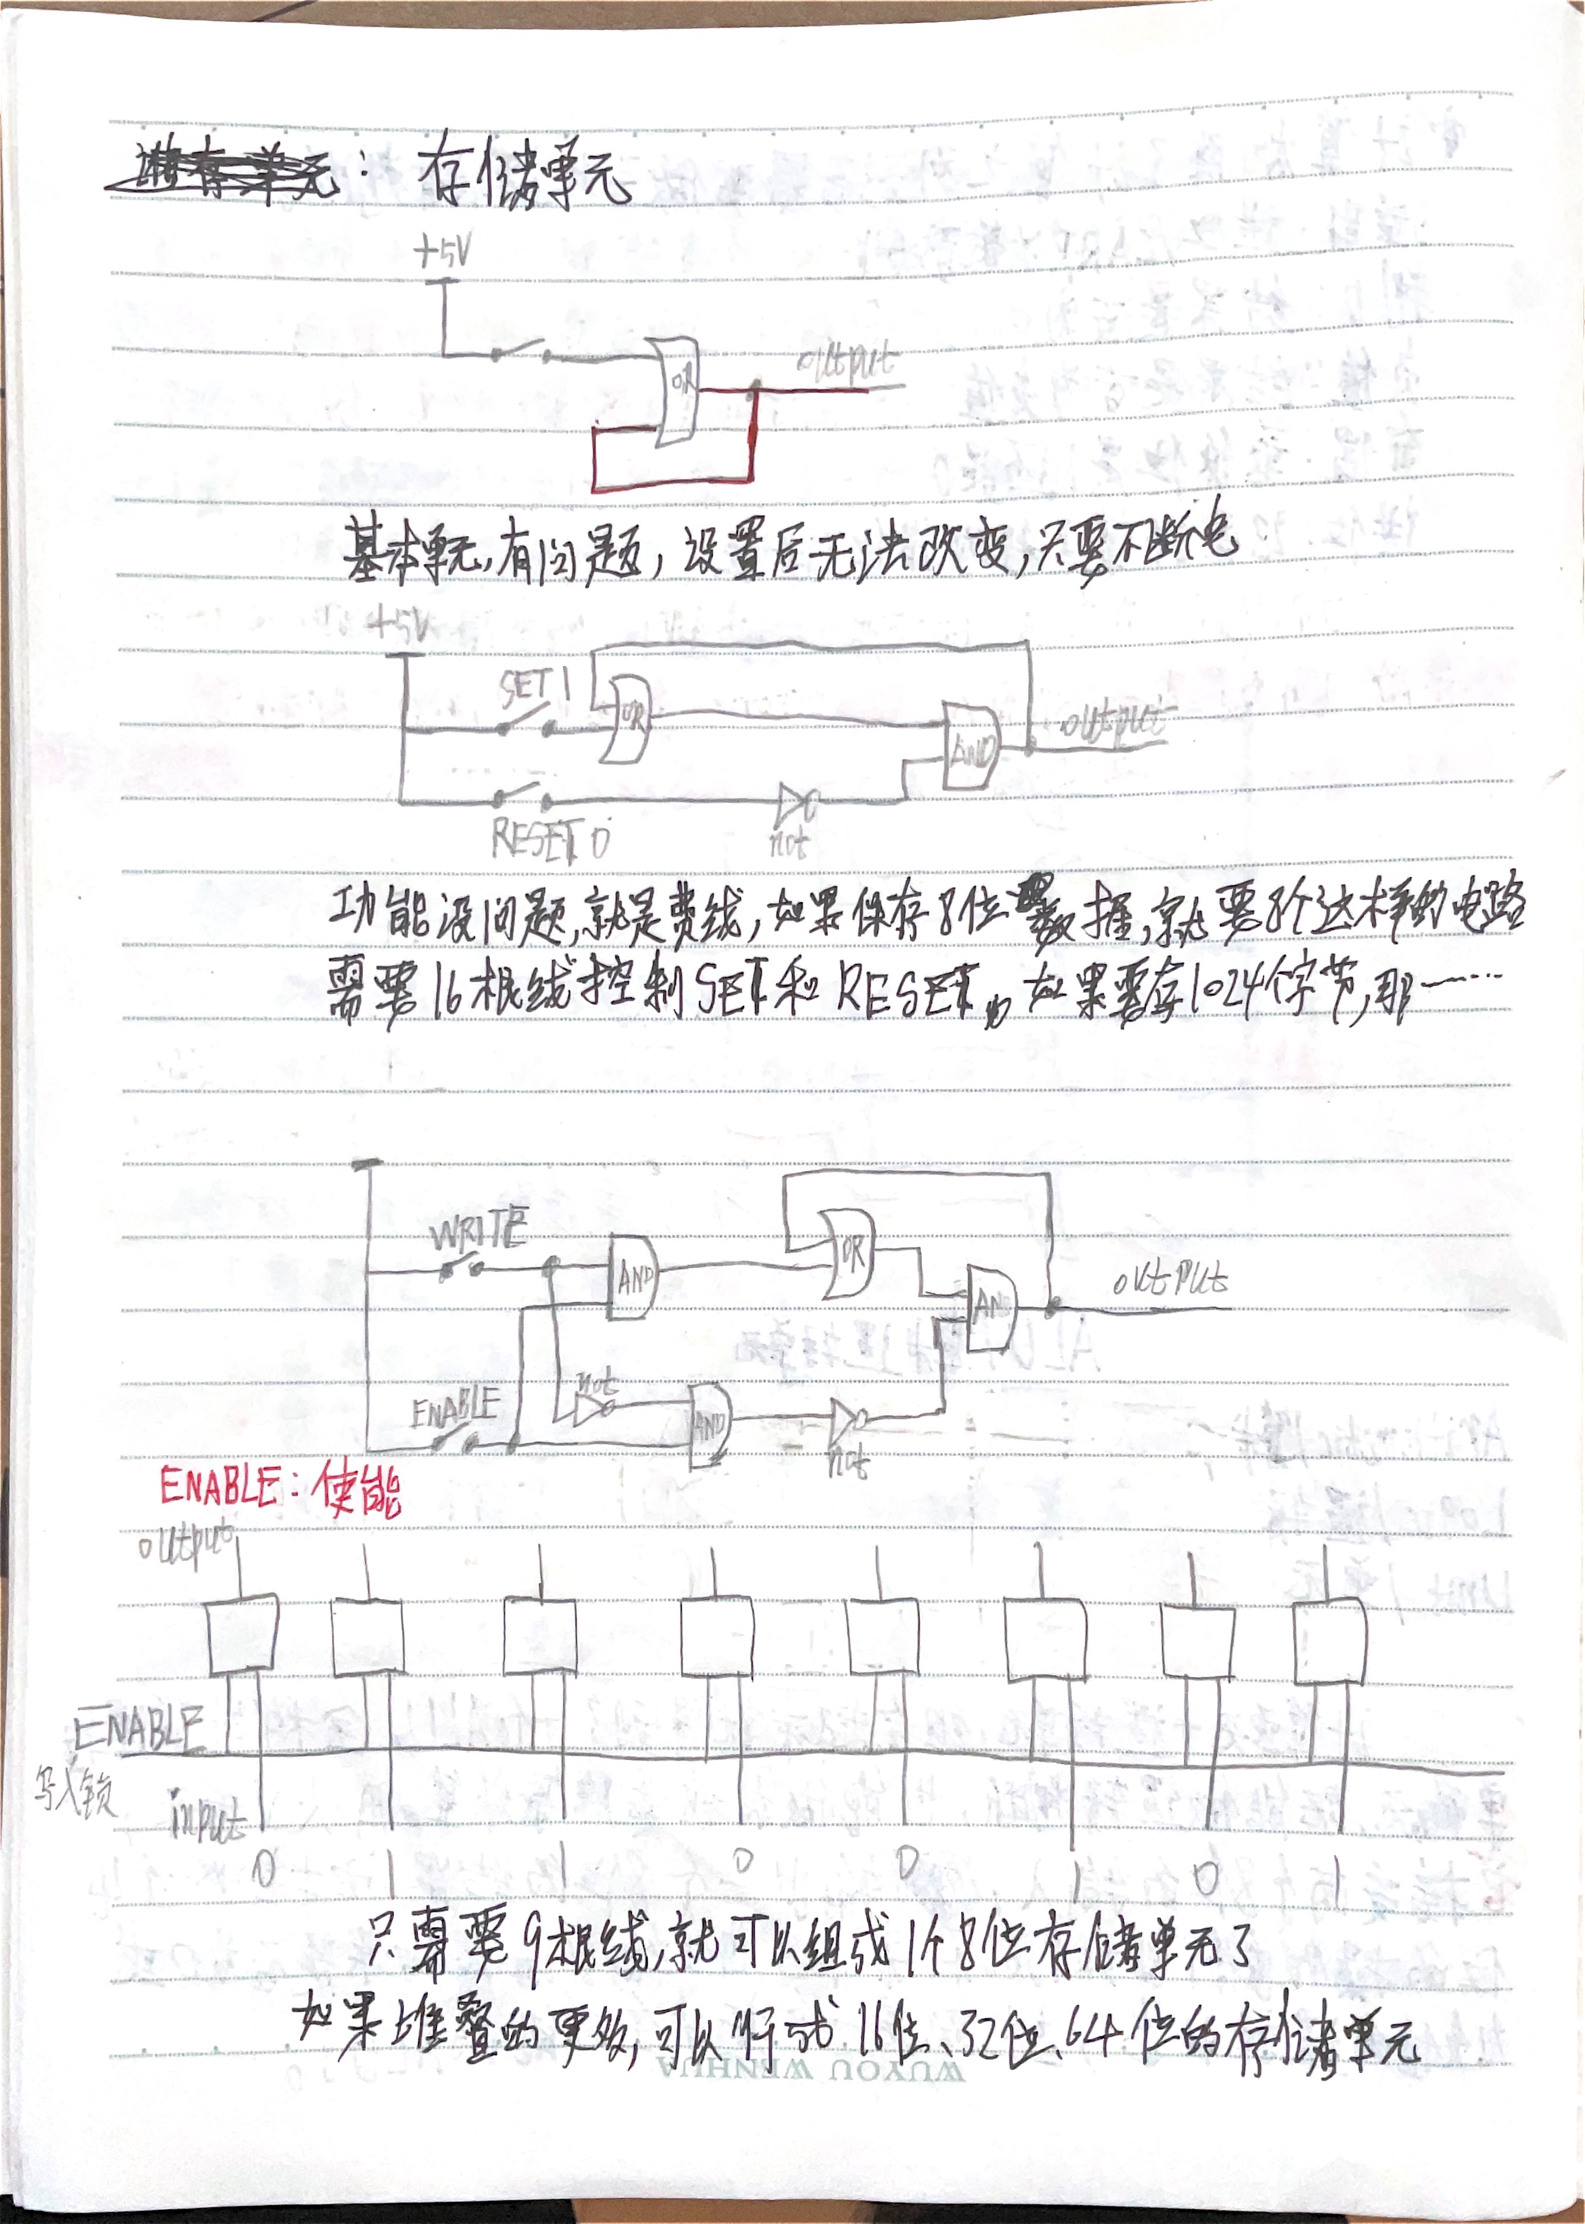 存储单元
+5V
OR
output
基本单元,有问题,设置后无法改变,只要不断电
+5V
SET 1
OR
AND
output
RESET 0
not
功能没问题,就是费线,如果保存8位数据,就要8个这样的电路
需要16根线控制SET和RESET。如果要存1024个字节,那……
WRITE
AND
OR
AN
output
ENABLE
not
AND
not
ENABLE: 使能
output
ENABLE
写入锁
input
0 1 1 0 0 1 0 1
只需要9根线,就可以组成1个8位存储单元了
如果堆叠的更多,可以形成16位、32位、64位的存储单元
WUYOU WENHUA